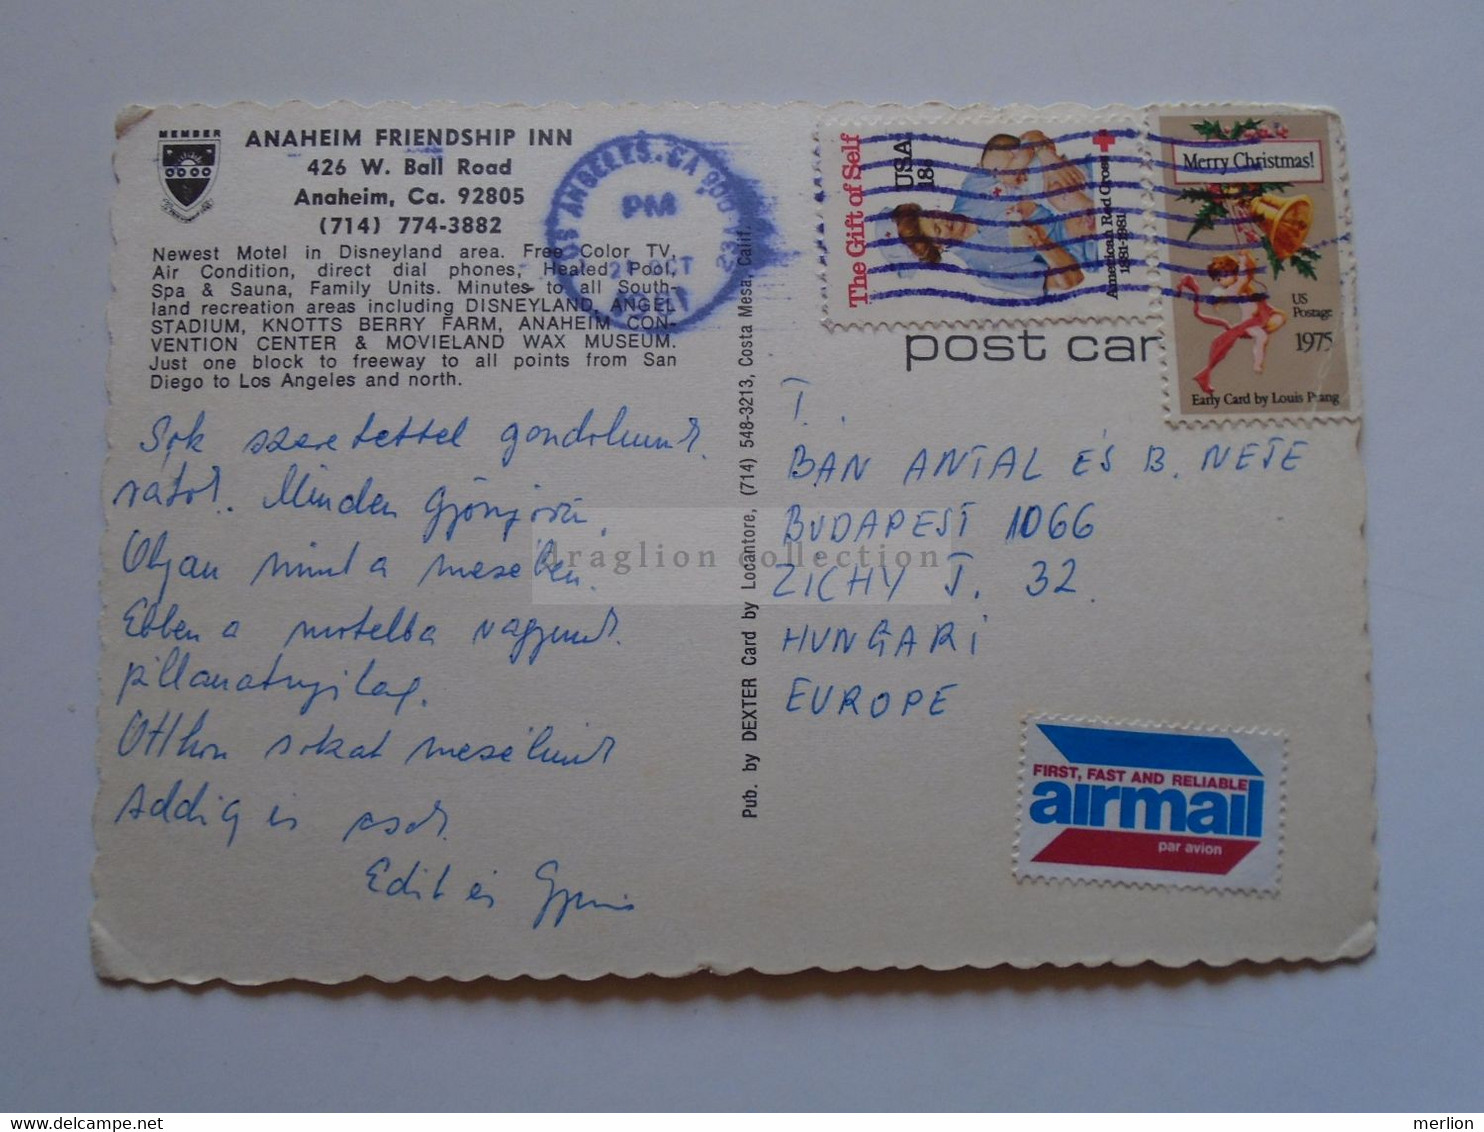 MEMBER
ANAHEIM FRIENDSHIP INN
426 W. Ball Road
Anaheim, Ca. 92805
(714) 774-3882
Newest Motel in Disneyland area. Free Color TV,
Air Condition, direct dial phones, Heated Pool,
Spa & Sauna, Family Units. Minutes to all South-
land recreation areas including DISNEYLAND, ANGEL
STADIUM, KNOTTS BERRY FARM, ANAHEIM CON-
VENTION CENTER & MOVIELAND WAX MUSEUM.
Just one block to freeway to all points from San
Diego to Los Angeles and north.
Sok szeretettel gondolunk
rátok. Minden gyönyörű,
Olyan mint a mesében.
Ebben a motelba vagyunk
pillanatnyilag.
Otthon sokat mesélünk
addig is csók
Edit és
LOS ANGELES, CA 900
PM
21 OCT
The Gift of Self
USA 18c
American Red Cross
1881-1981
Merry Christmas!
US
Postage
1975
Early Card by Louis Prang
post car
T.
BÁN ANTAL ÉS B. NEJE
BUDAPEST 1066
ZICHY J. 32
HUNGARI
EUROPE
FIRST, FAST AND RELIABLE
airmail
par avion
Pub. by DEXTER Card by Locantore, (714) 548-3213, Costa Mesa, Calif.
draglion collection
merlion